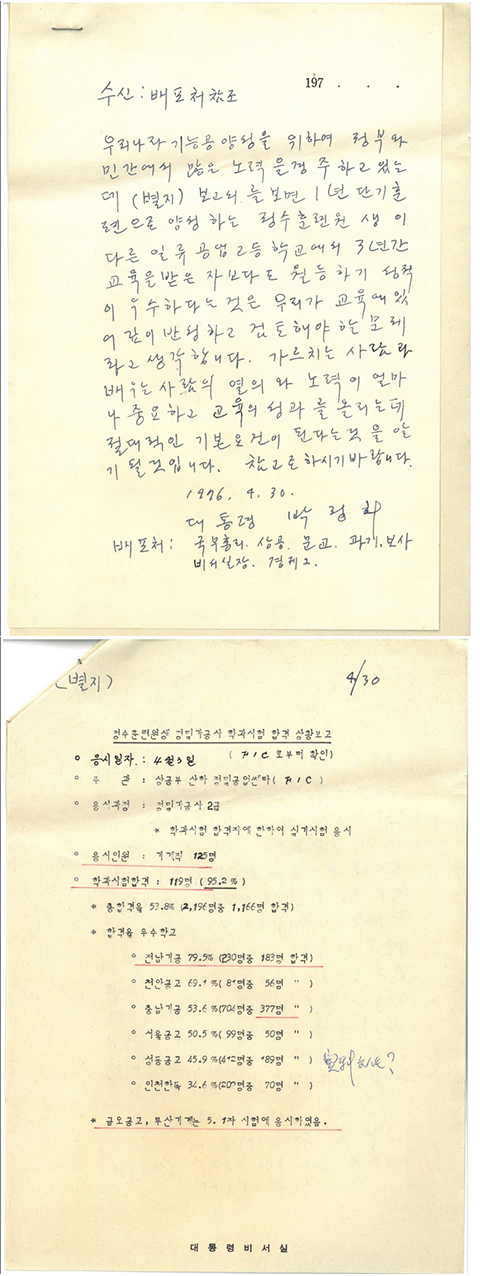 197 . . .
수신 : 배포처참조
우리나라 기능공 양성을 위하여 정부와
민간에서 많은 노력을 경주하고 있는
데 (별지) 보고서를 보면 1년 단기훈
련으로 양성하는 정수훈련원생이
다른 일류 공업고등학교에서 3년간
교육을 받은 자보다도 월등하게 성적
이 우수하다는 것은 우리가 교육에 있
어 깊이 반성하고 검토해야 할 문제
라고 생각합니다. 가르치는 사람과
배우는 사람의 열의와 노력이 얼마
나 중요하고 교육의 성과를 올리는데
절대적인 기본요건이 된다는 것을 알
게 될 것입니다. 참고로 하시기 바랍니다.
1976. 4. 30.
대통령 박정희
배포처 : 국무총리. 상공. 문교. 과기. 보사
비서실장. 경제2.
(別지) 4/30
정수훈련원생 정밀가공사 학과시험 합격 상황보고
(FIC 로부터 확인)
o 응시일자 : 4월3일
o 주 관 : 상공부 산하 정밀공업쎈타 (FIC)
o 응시과정 : 정밀가공사 2급
* 학과시험 합격자에 한하여 실기시험 응시
o 응시인원 : 기계직 125명
o 학과시험합격 : 119명 (95.2%)
* 총합격율 53.8% (2,196명중 1,166명 합격)
* 합격율 우수학교
o 전남기공 79.5% (230명중 183명 합격)
o 천안공고 69.1% (81명중 56명 " )
o 충남기공 53.6% (704명중 377명 " )
o 서울공고 50.5% (99명중 50명 " )
o 성동공고 45.9% (412명중 189명 " )
o 인천한독 34.6% (202명중 70명 " )
* 금오공고, 부산기계는 5.1자 시험에 응시하였음.
대통령비서실